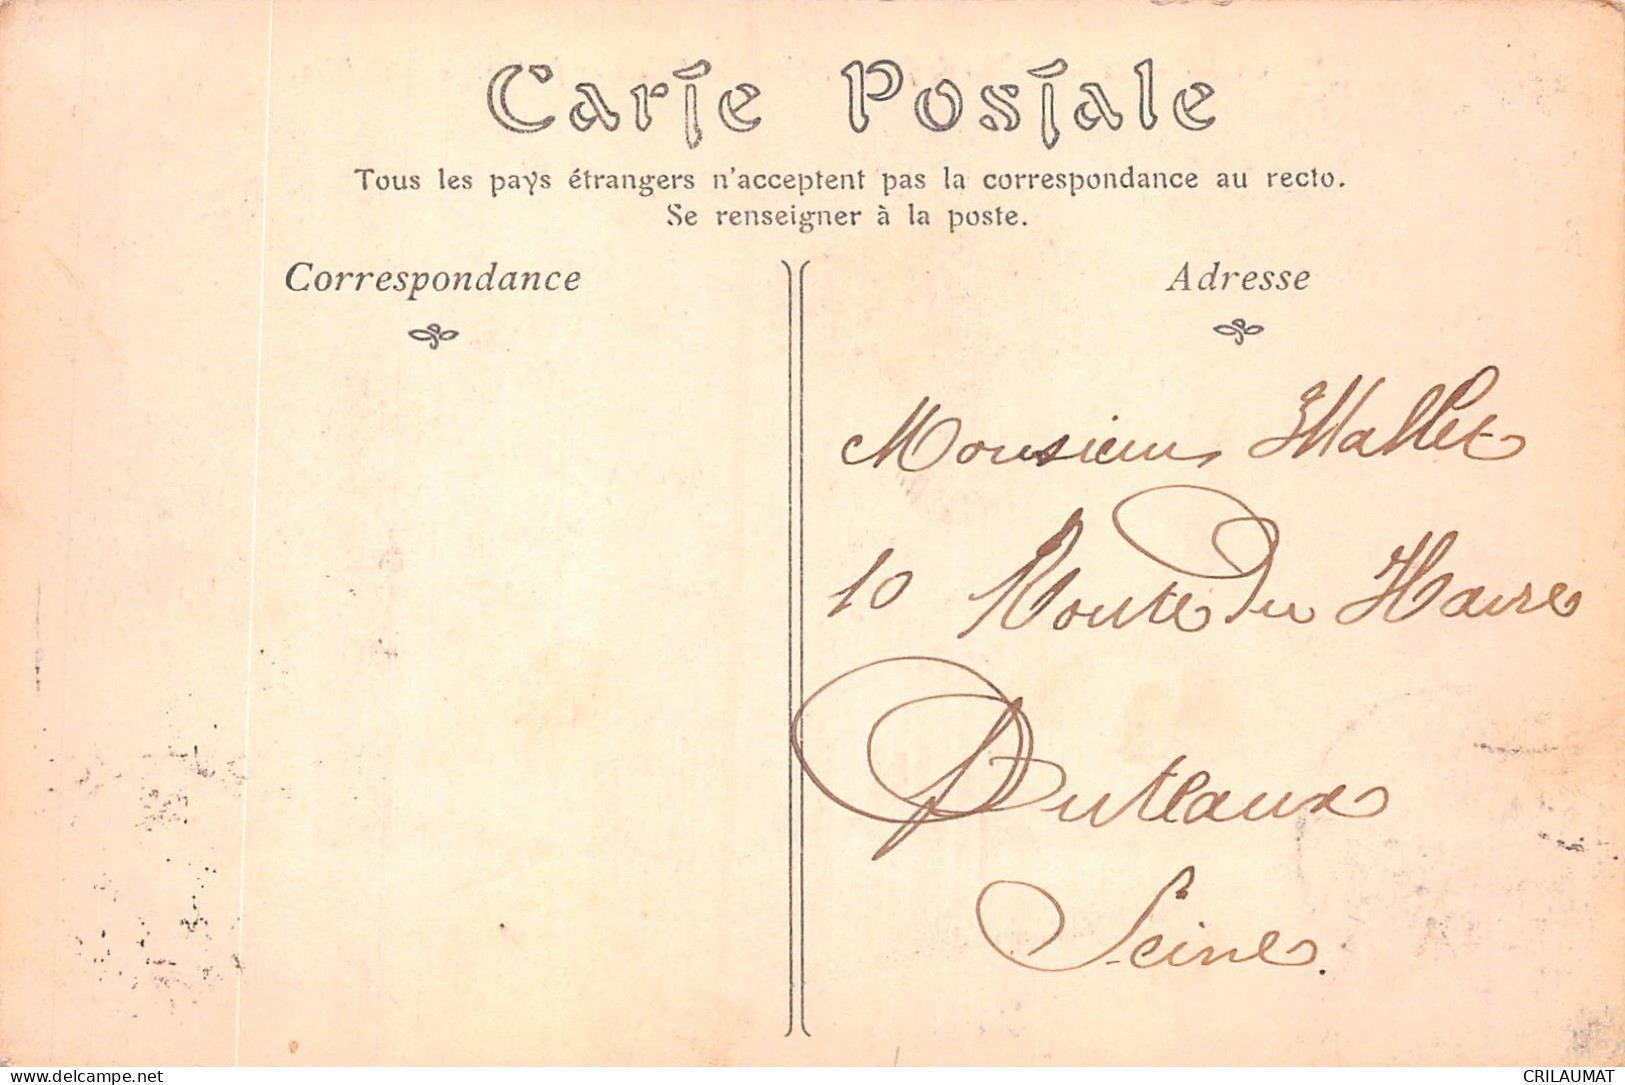 Carte Postale
Tous les pays étrangers n'acceptent pas la correspondance au recto.
Se renseigner à la poste.
Correspondance
Adresse
Monsieur Mallet
10 Route du Havre
Puteaux
Seine.
delcampe.net
CRILAUMAT